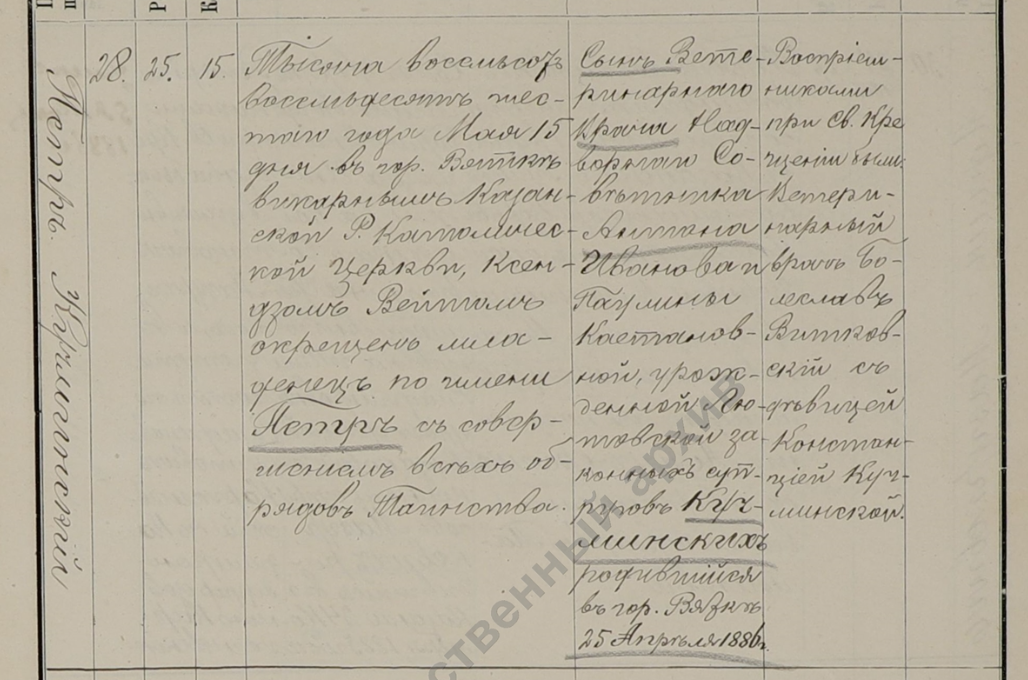 Петръ Кучминскій
28.
25.
15.
Тысяча восемьсотъ
восемьдесятъ шес-
таго года Мая 15
дня въ гор. Вяткѣ
викарнымъ Казан-
ской Р. Католичес-
кой Церкви, Ксен-
дзомъ Вейтомъ
окрещенъ мла-
денецъ по имени
Петръ съ совер-
шеніемъ всѣхъ об-
рядовъ Таинства.
Сынъ Вете-
ринарнаго
Врача Над-
ворнаго Со-
вѣтника
Антона
Иванова и
Паулины
Каетанов-
ной, урож-
денной
законныхъ суп-
руговъ Куч-
минскихъ
родившійся
въ гор. Вяткѣ
25 Апрѣля 1886 г.
Воспріем-
никами
при Св. Кре
щеніи были:
Ветери-
нарный
врачъ Бо-
леславъ
Витков-
скій съ
дѣвицей
Констан-
ціей Куч-
минской.
ственный архив